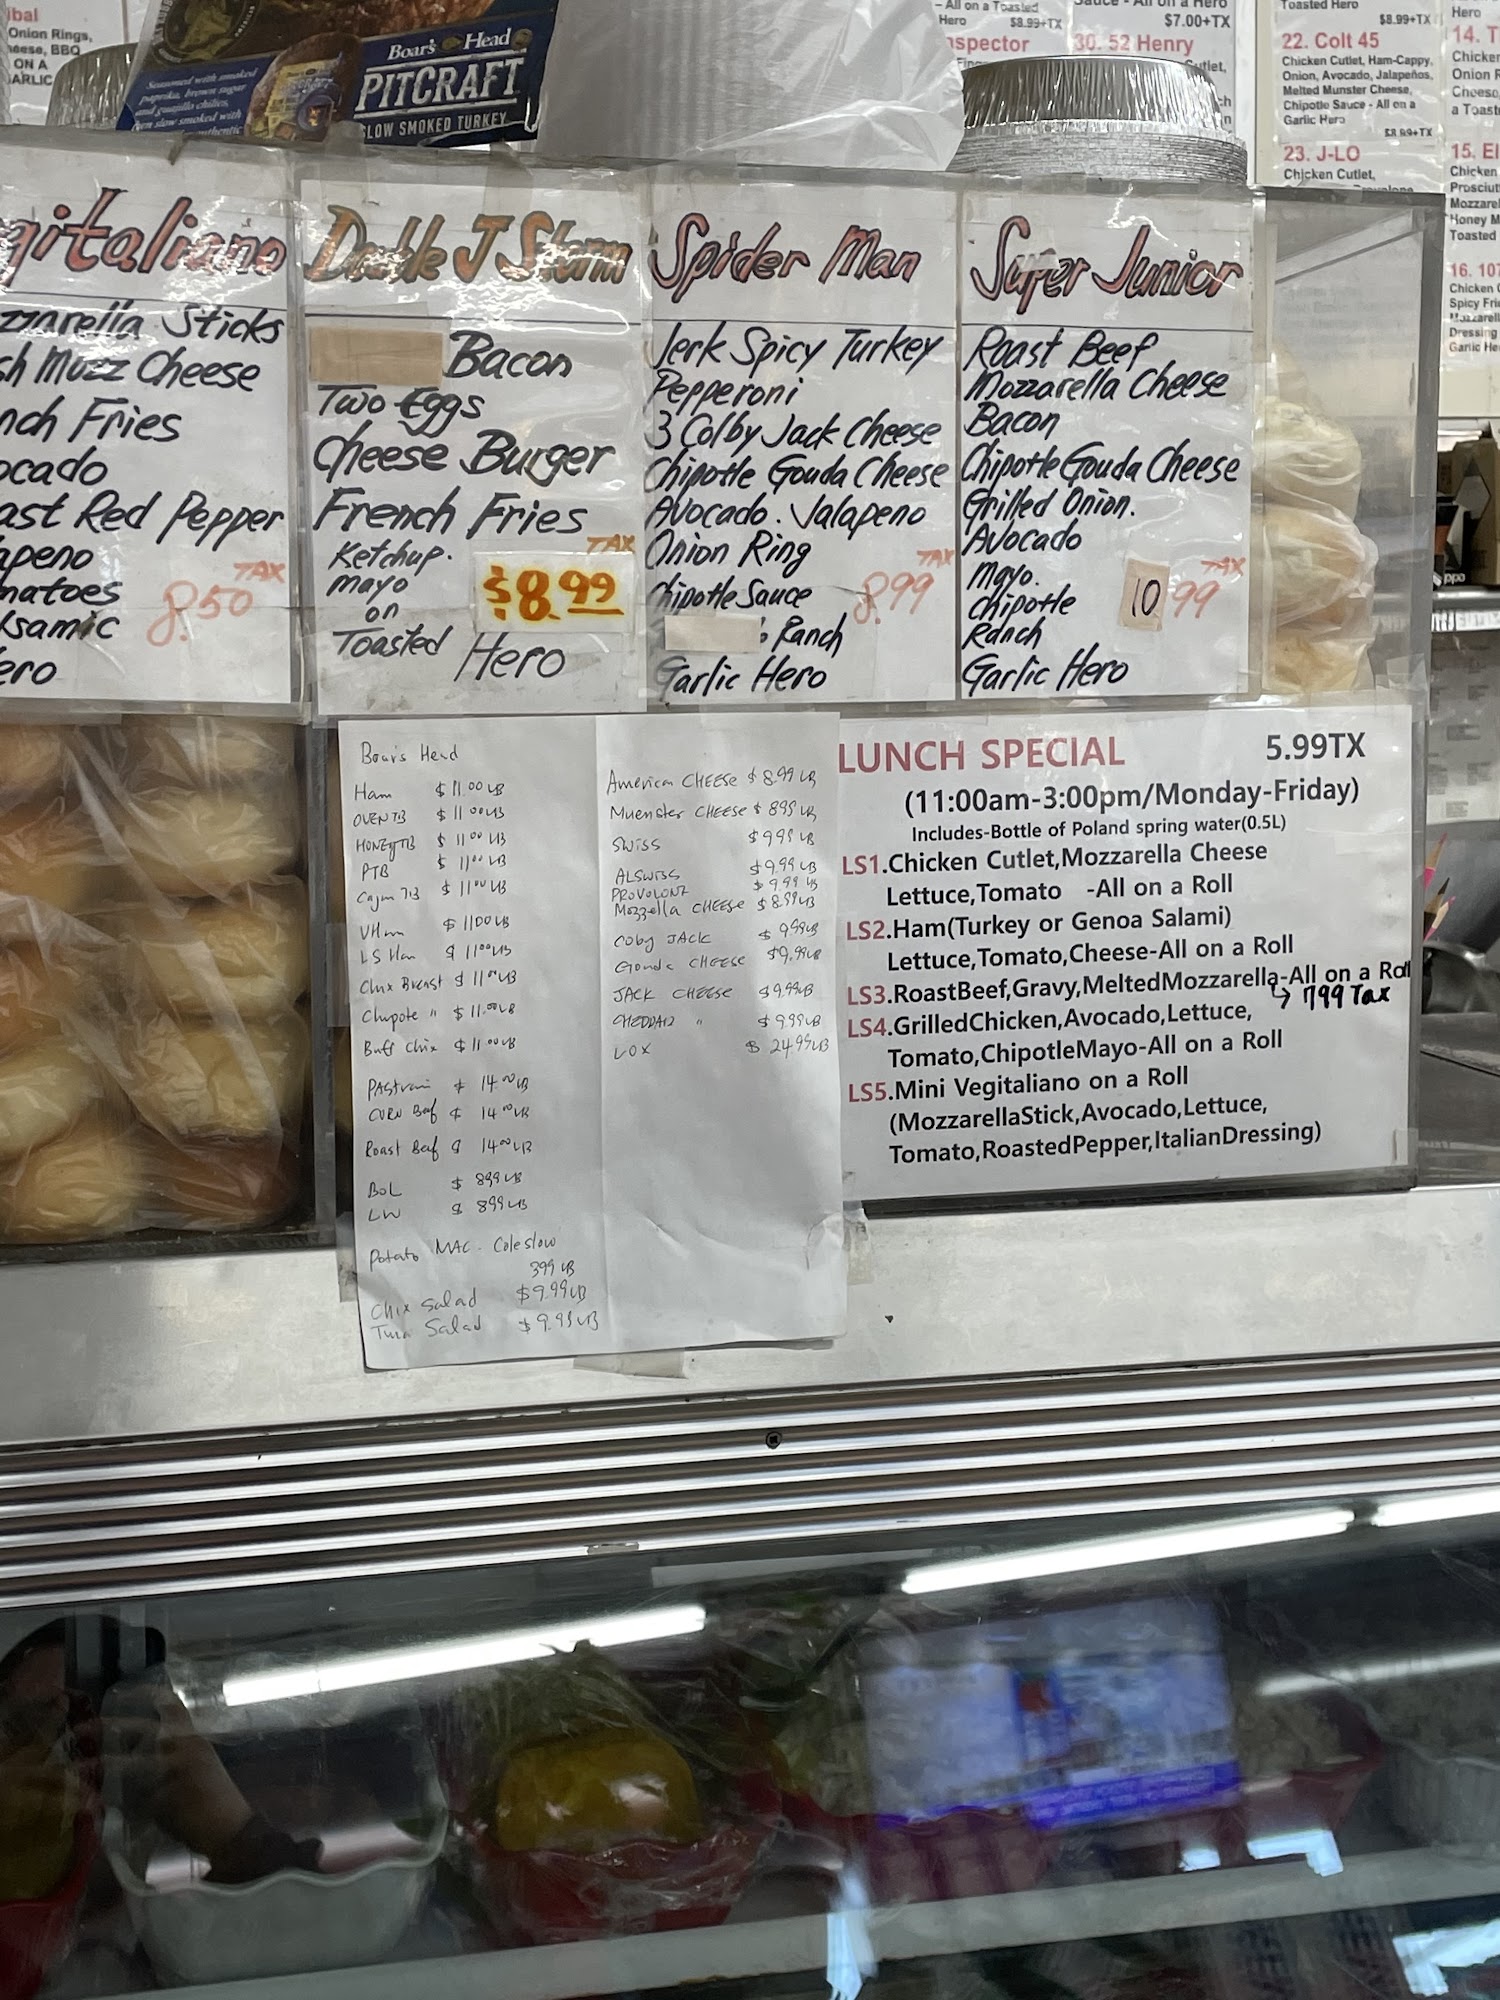 ibal
Onion Rings,
heese, BBQ
ON A
GARLIC
Seasoned with smoked
paprika, brown sugar
and guajillo chilies,
smoked with
authentic
Boar's Head
PITCRAFT
SLOW SMOKED TURKEY
- All on a Toasted
Hero $8.99+TX
nspector
Sauce - All on a Hero
$7.00+TX
30. 52 Henry
utlet,
Toasted Hero
$8.99+TX
22. Colt 45
Chicken Cutlet, Ham-Cappy,
Onion, Avocado, Jalapeños,
Melted Munster Cheese,
Chipotle Sauce - All on a
Garlic Hero
$8.99+TX
23. J-LO
Chicken Cutlet,
Hero
14. T
Chicken
Onion R
Cheese,
a Toast
15. El
Chicken
Prosciut
Mozzarel
Honey M
Toasted
16. 107
Chicken C
Spicy Fri
Mozzarell
Dressing
Garlic He
gitaliano
zzarella Sticks
sh Muzz Cheese
nch Fries
ocado
ast Red Pepper
apeno
matoes
lsamic
ero
TAX
8.50
Double J Storm
Bacon
Two Eggs
Cheese Burger
French Fries
Ketchup.
mayo
on
Toasted Hero
TAX
$8.99
Spider Man
Jerk Spicy Turkey
Pepperoni
3 Colby Jack Cheese
Chipotle Gouda Cheese
Avocado. Jalapeno
Onion Ring
Chipotle Sauce
Ranch
Garlic Hero
TAX
8.99
Super Junior
Roast Beef
Mozzarella Cheese
Bacon
Chipotle Gouda Cheese
Grilled Onion.
Avocado
Mayo.
Chipotle
Ranch
Garlic Hero
TAX
10 99
Boar's Head
Ham $11.00 LB
OVEN TB $11 00 LB
HONEY TB $11 00 LB
PTB $11 00 LB
Cajun TB $11 00 LB
VHam $11 00 LB
LS Ham $11 00 LB
Chix Breast $11 00 LB
Chipote " $11.00 LB
Buff Chix $11 00 LB
PAstrami $14 00 LB
CORN Beef $14 00 LB
Roast Beef $14 00 LB
BOL $899 LB
LW $899 LB
Potato MAC. Coleslow
399 LB
Chix Salad $9.99 LB
Tuna Salad $9.99 LB
American CHEESE $8.99 LB
Muenster CHEESE $899 LB
SWISS $999 LB
ALSWISS $9.99 LB
PROVOLONE $9.99 LB
Mozzella CHEESE $8.99 LB
COBY JACK $999 LB
Gouda CHEESE $9.99 LB
JACK CHEESE $9.99 LB
CHEDDAR " $9.99 LB
LOX $24.99 LB
LUNCH SPECIAL 5.99TX
(11:00am-3:00pm/Monday-Friday)
Includes-Bottle of Poland spring water(0.5L)
LS1.Chicken Cutlet,Mozzarella Cheese
Lettuce,Tomato -All on a Roll
LS2.Ham(Turkey or Genoa Salami)
Lettuce,Tomato,Cheese-All on a Roll
LS3.RoastBeef,Gravy,MeltedMozzarella-All on a Roll
↳ 799 Tax
LS4.GrilledChicken,Avocado,Lettuce,
Tomato,ChipotleMayo-All on a Roll
LS5.Mini Vegitaliano on a Roll
(MozzarellaStick,Avocado,Lettuce,
Tomato,RoastedPepper,ItalianDressing)